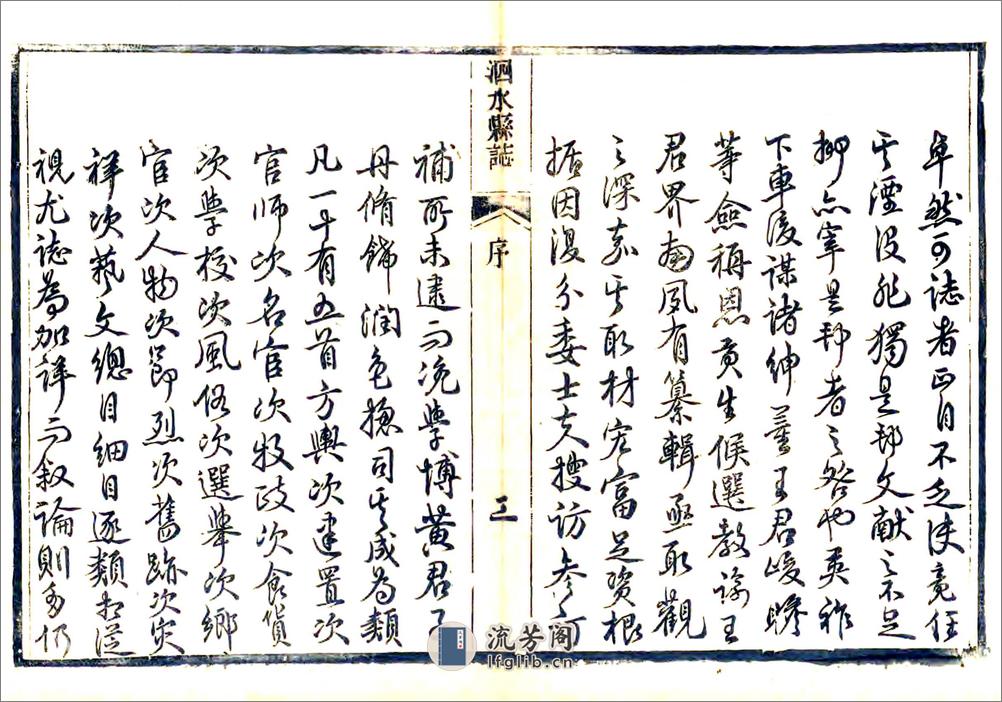 卓然可誌者正自不乏使竟任
其湮没非獨是邦文献之不足
抑亦宰是邦者之咎也爰祚
下車後謀諸紳董王君峻
等僉稱恩貢生候選教諭王
君界南夙有纂輯亟取觀
之深嘉其取材宏富足资根
据因復分委士夫搜訪参訂
泗水縣誌
序
三
補所未逮而沈學博黄君
丹脩餙潤色總司其成為類
凡一十有五首方輿次建置次
官师次名官次牧政次食貨
次學校次風俗次選舉次鄉
官次人物次節烈次舊跡次灾
祥次藝文總目細目逐類相從
視尤誌為加詳而叙論則多仍
流芳阁
lfglib.cn